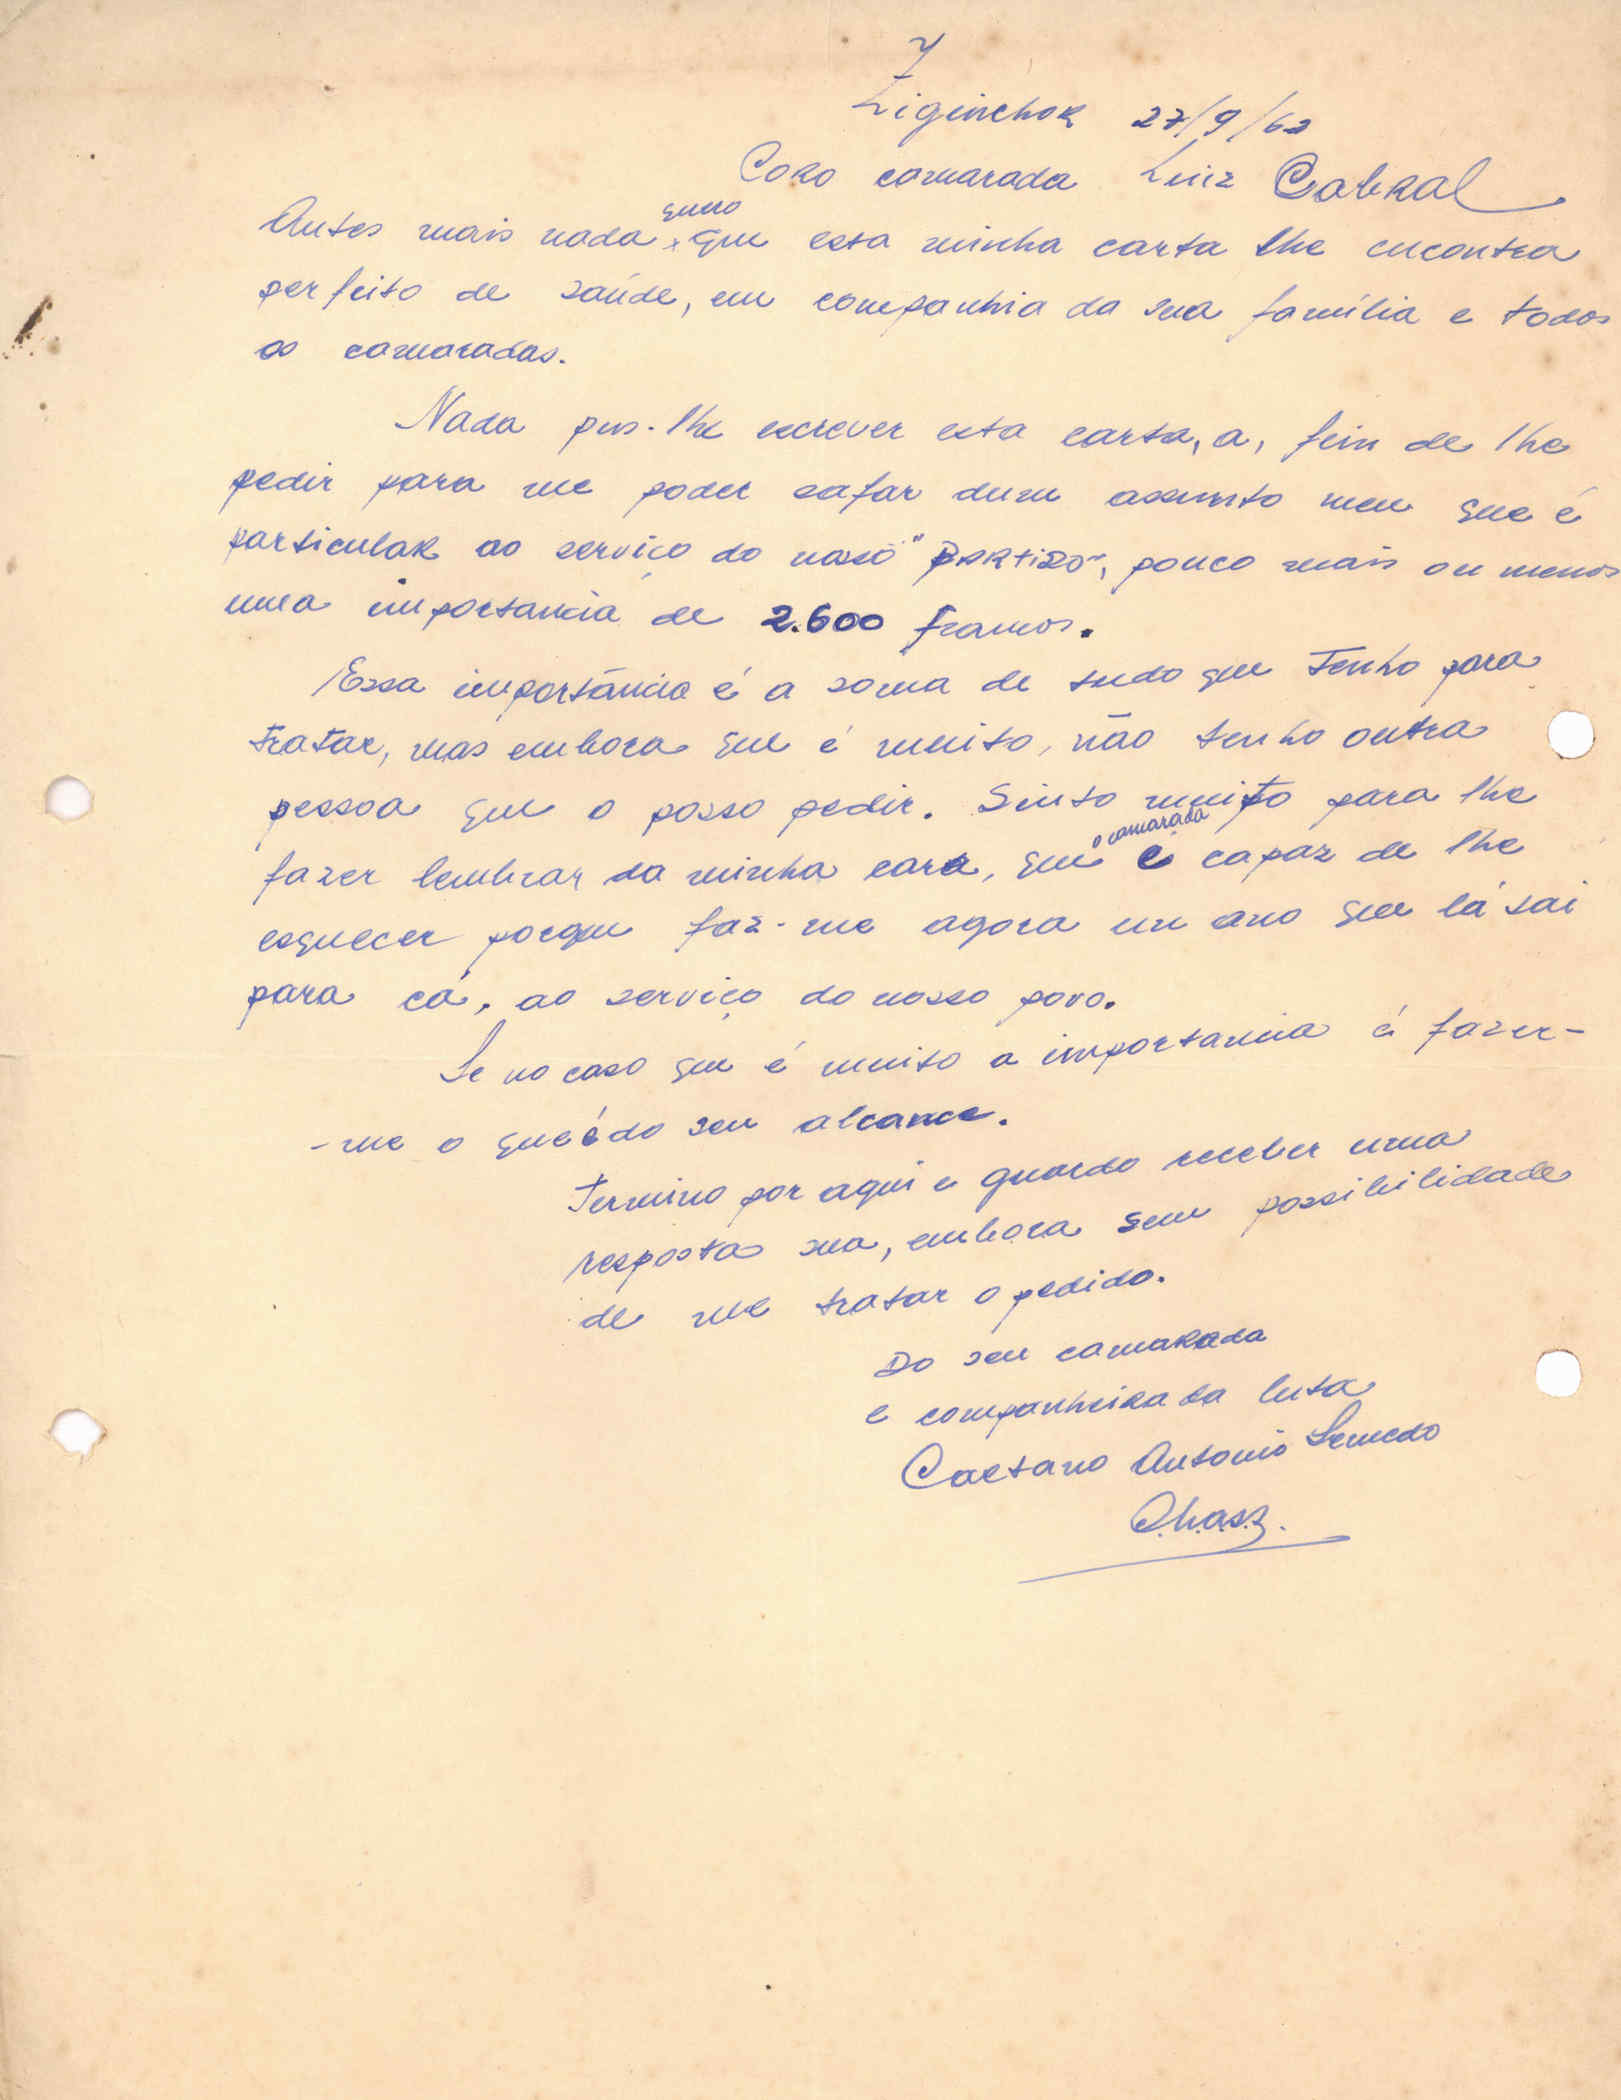 Ziginchor 27/9/62
Caro camarada Luiz Cabral
Antes mais nada quero que esta minha carta lhe encontra
perfeito de saúde, em companhia da sua família e todos
os camaradas.
Nada pus-lhe escrever esta carta, a, fim de lhe
pedir para me poder safar dum assunto meu que é
particular ao serviço do nosso "PARTIDO", pouco mais ou menos
uma importancia de 2.600 francos.
Essa importância é a soma de tudo que tenho para
tratar, mas embora que é muito, não tenho outra
pessoa que o posso pedir. Sinto muito para lhe
fazer lembrar da minha cara, que o camarada é capaz de lhe
esquecer porque faz-me agora um ano que lá sai
para cá, ao serviço do nosso povo.
Se no caso que é muito a importancia é fazer-
-me o que é do seu alcance.
Termino por aqui e guardo receber uma
resposta sua, embora sem possibilidade
de me tratar o pedido.
Do seu camarada
e companheira da luta
Caetano Antonio Semedo